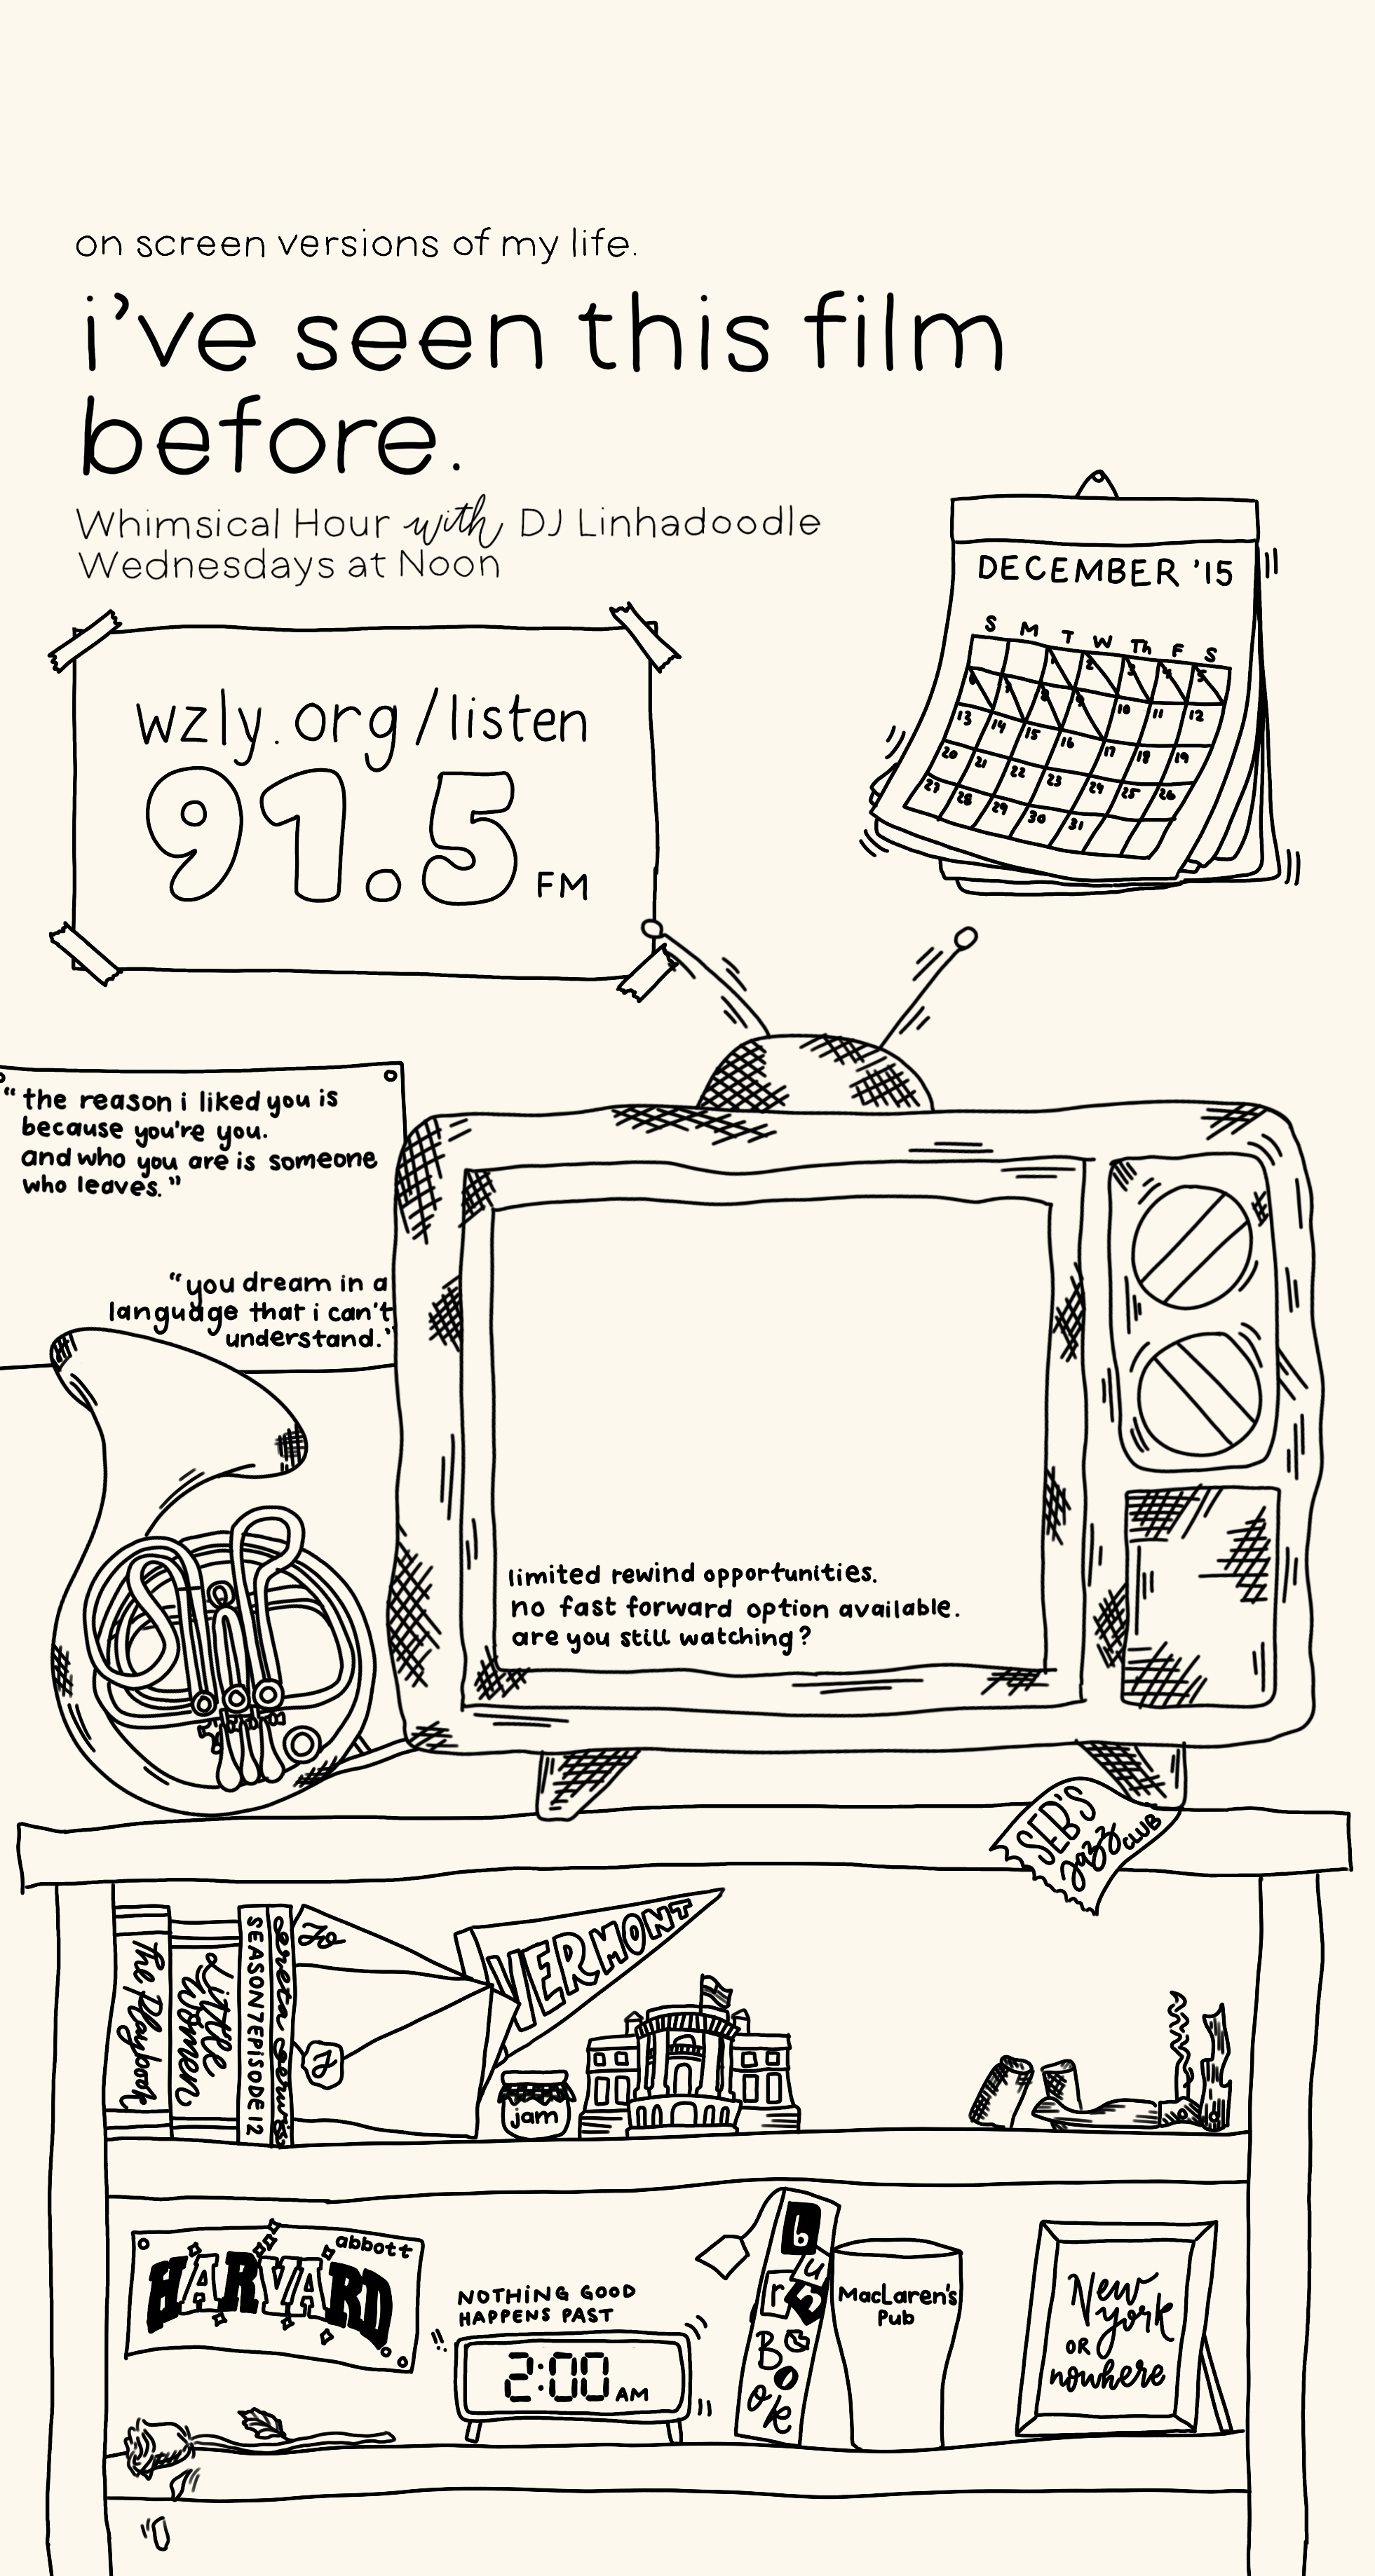 on screen versions of my life.
i've seen this film
before.
Whimsical Hour with DJ Linhadoodle
Wednesdays at Noon
wzly.org/listen
91.5
FM
DECEMBER '15
S M T W Th F S
1 2 3 4 5
6 7 8 9 10 11 12
13 14 15 16 17 18 19
20 21 22 23 24 25 26
27 28 29 30 31
"the reason i liked you is
because you're you.
and who you are is someone
who leaves."
"you dream in a
language that i can't
understand."
limited rewind opportunities.
no fast forward option available.
are you still watching?
SEB'S
jazz
CLUB
The Playbook
Little
Women
SEASON 7 EPISODE 12
Jo
J
VERMONT
jam
abbott
HARVARD
NOTHING GOOD
HAPPENS PAST
2:00 AM
burn
Book
MacLaren's
Pub
New
york
OR
nowhere